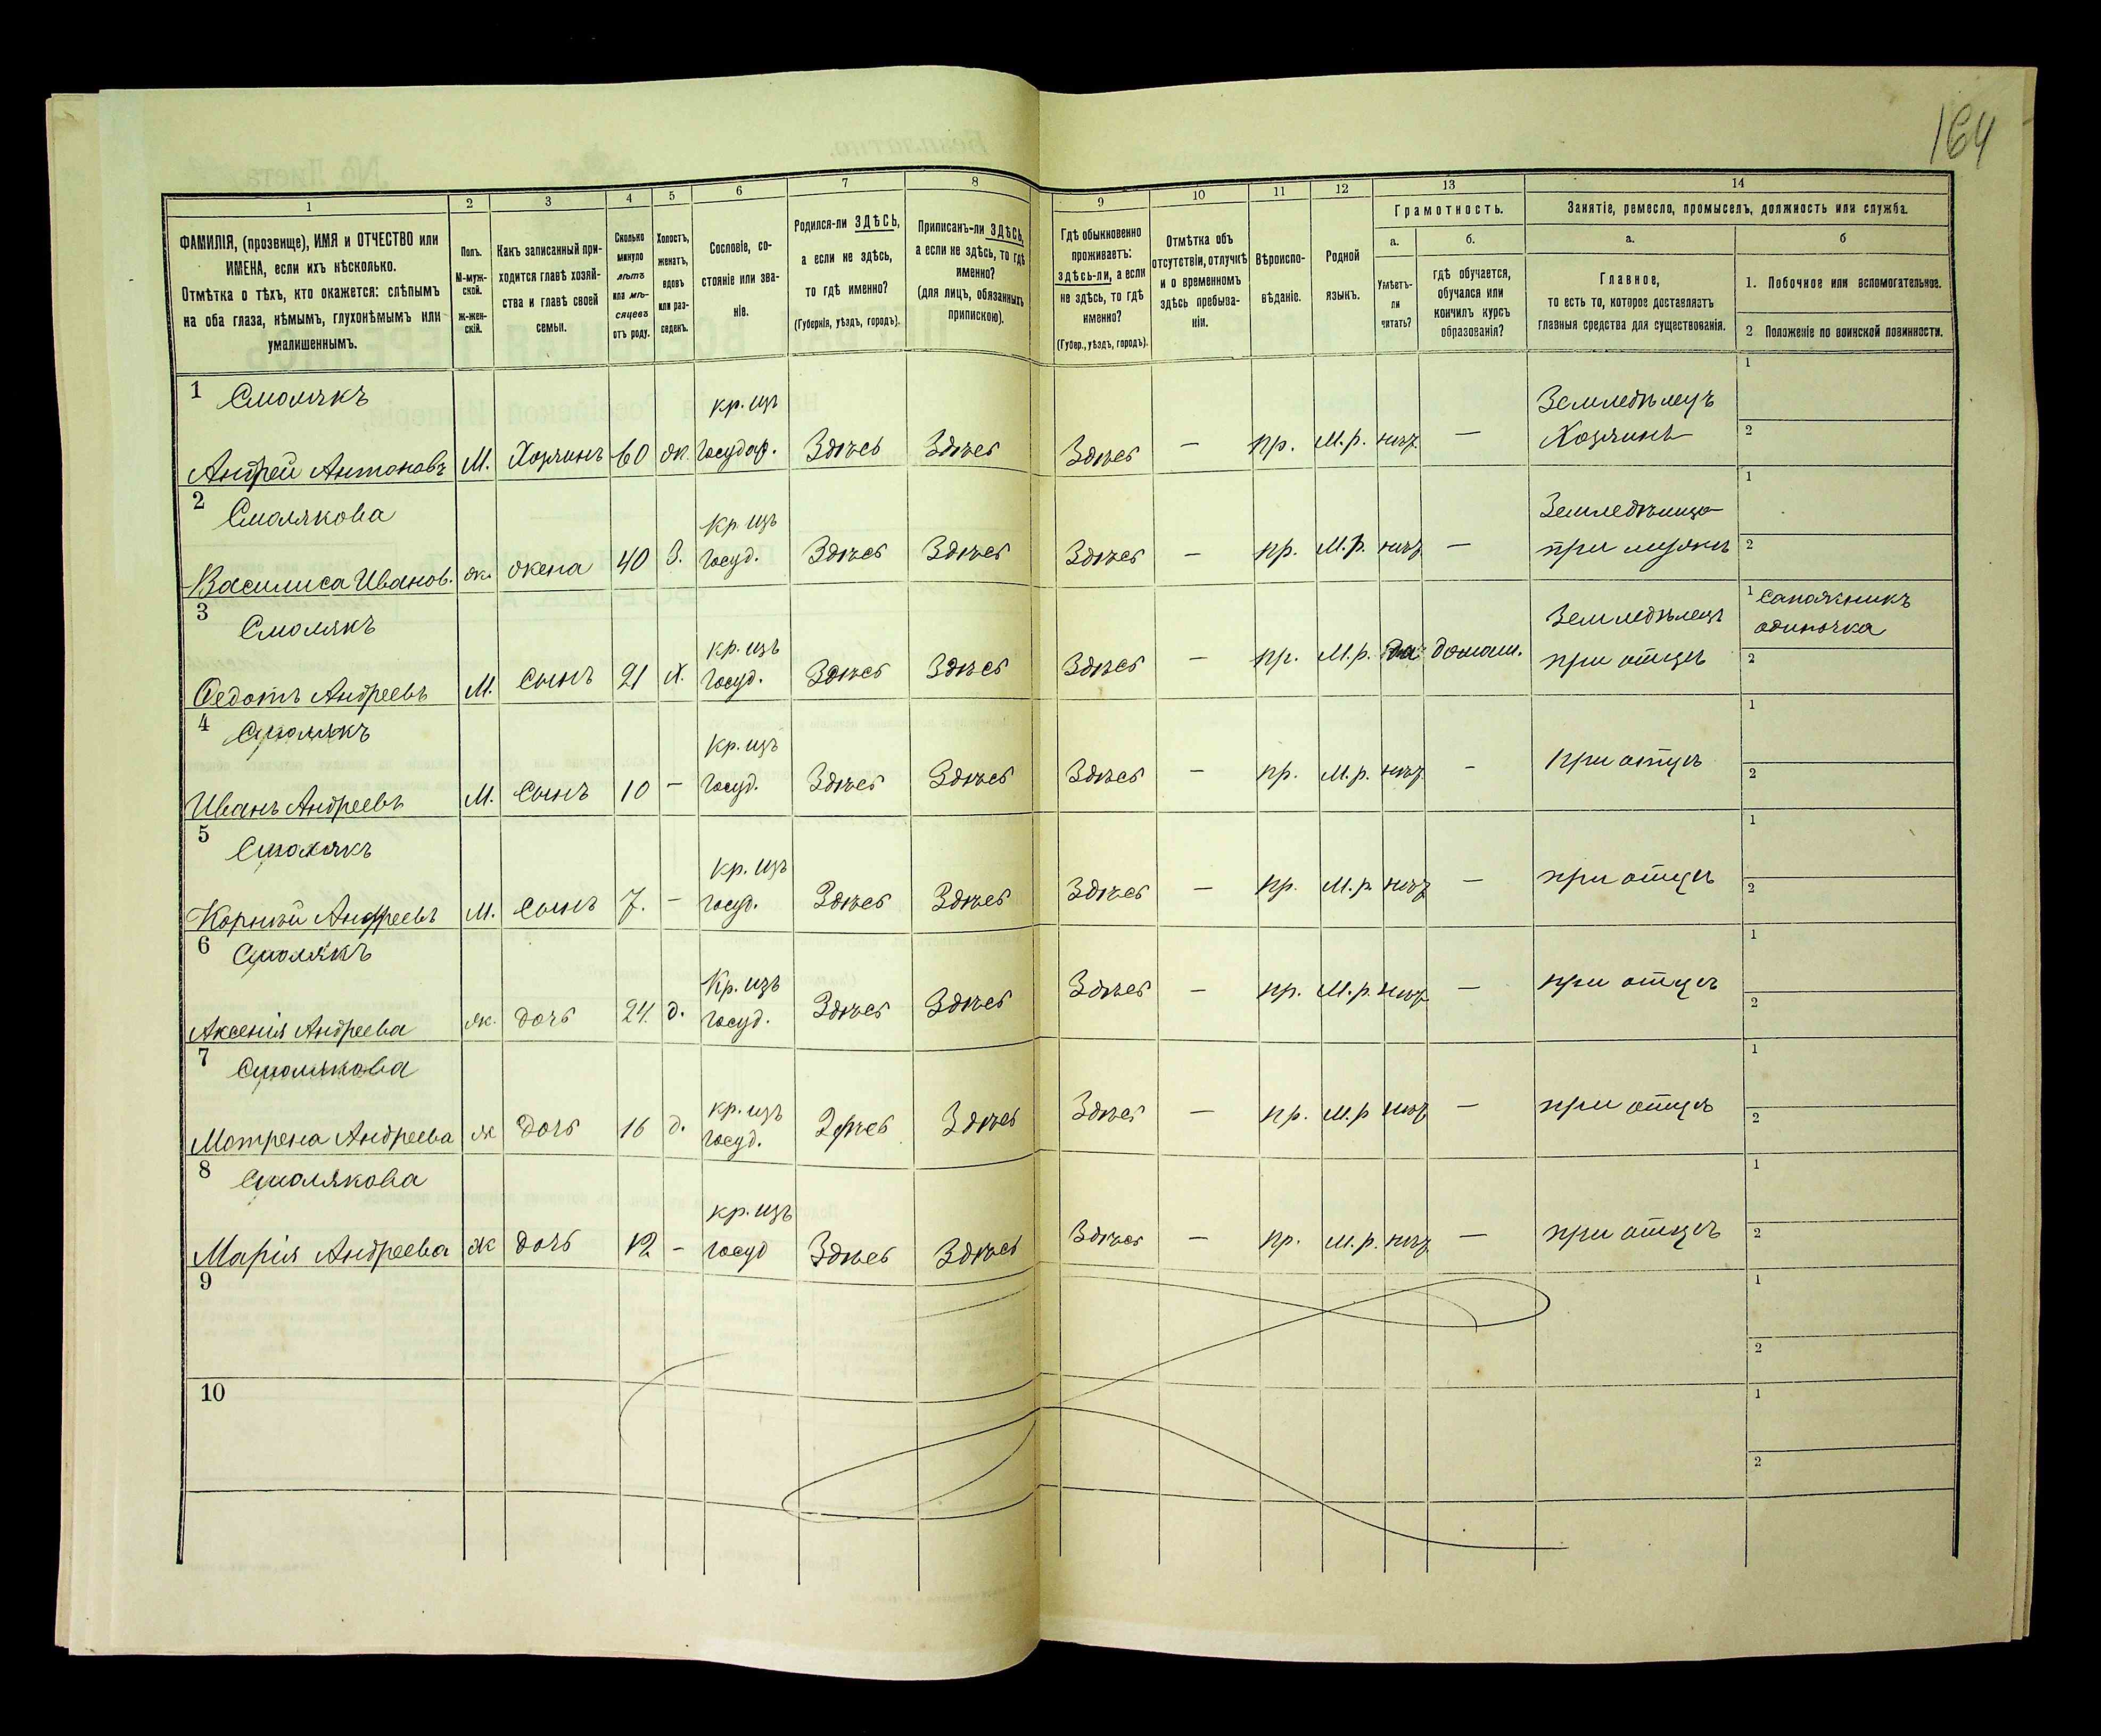 164
1 2 3 4 5 6 7 8 9 10 11 12 13 14
ФАМИЛІЯ, (прозвище), ИМЯ и ОТЧЕСТВО или
ИМЕНА, если ихъ нѣсколько.
Отмѣтка о тѣхъ, кто окажется: слѣпымъ
на оба глаза, нѣмымъ, глухонѣмымъ или
умалишеннымъ.
Полъ.
М-муж-
ской.
Ж-жен-
скій.
Какъ записанный при-
ходится главѣ хозяй-
ства и главѣ своей
семьи.
Сколько
минуло
лѣтъ
или мѣ-
сяцевъ
отъ роду.
Холостъ,
женатъ,
вдовъ
или раз-
веденъ.
Сословіе, со-
стояніе или зва-
ніе.
Родился-ли ЗДѢСЬ,
а если не здѣсь,
то гдѣ именно?
(Губернія, уѣздъ, городъ).
Приписанъ-ли ЗДѢСЬ,
а если не здѣсь, то гдѣ
именно?
(для лицъ, обязанныхъ
припискою).
Гдѣ обыкновенно
проживаетъ:
здѣсь-ли, а если
не здѣсь, то гдѣ
именно?
(Губер., уѣздъ, городъ).
Отмѣтка объ
отсутствіи, отлучкѣ
и о временномъ
здѣсь пребыва-
ніи.
Вѣроиспо-
вѣданіе.
Родной
языкъ.
Грамотность.
а.
Умѣетъ-
ли
читать?
б.
гдѣ обучается,
обучался или
кончилъ курсъ
образованія?
Занятіе, ремесло, промыселъ, должность или служба.
а.
Главное,
то есть то, которое доставляетъ
главныя средства для существованія.
б
1. Побочное или вспомогательное.
2 Положеніе по воинской повинности.
1 Смолякъ кр. изъ Земледѣлецъ 1
Андрей Антоновъ М. Хозяинъ 60 ж. Государ. Здѣсь Здѣсь Здѣсь — пр. М.р. нѣт — Хозяинъ 2
2 Смолякова кр. изъ Земледѣлица 1
Василиса Иванов. ж. жена 40 З. Госуд. Здѣсь Здѣсь Здѣсь — пр. М.р. нѣт — при мужѣ 2
3 Смолякъ кр. изъ Земледѣлецъ 1 Сапожникъ
одиночка
Федотъ Андреевъ М. Сынъ 21 х. Госуд. Здѣсь Здѣсь Здѣсь — пр. М.р. да домаш. при отцѣ 2
4 Смолякъ кр. изъ 1
Иванъ Андреевъ М. Сынъ 10 — Госуд. Здѣсь Здѣсь Здѣсь — пр. М.р. нѣт — при отцѣ 2
5 Смолякъ кр. изъ 1
Корнѣй Андреевъ М. Сынъ 7. — Госуд. Здѣсь Здѣсь Здѣсь — пр. М.р. нѣт — при отцѣ 2
6 Смолякъ Кр. изъ 1
Аксенія Андреева ж. дочь 24. д. Госуд. Здѣсь Здѣсь Здѣсь — пр. М.р. нѣт — при отцѣ 2
7 Смолякова кр. изъ 1
Мотрена Андреева ж дочь 16 д. Госуд. Здѣсь Здѣсь Здѣсь — пр. М.р нѣт — при отцѣ 2
8 Смолякова кр. изъ 1
Марія Андреева ж дочь 12 — Госуд Здѣсь Здѣсь Здѣсь — пр. М.р. нѣт — при отцѣ 2
9 1
2
10 1
2